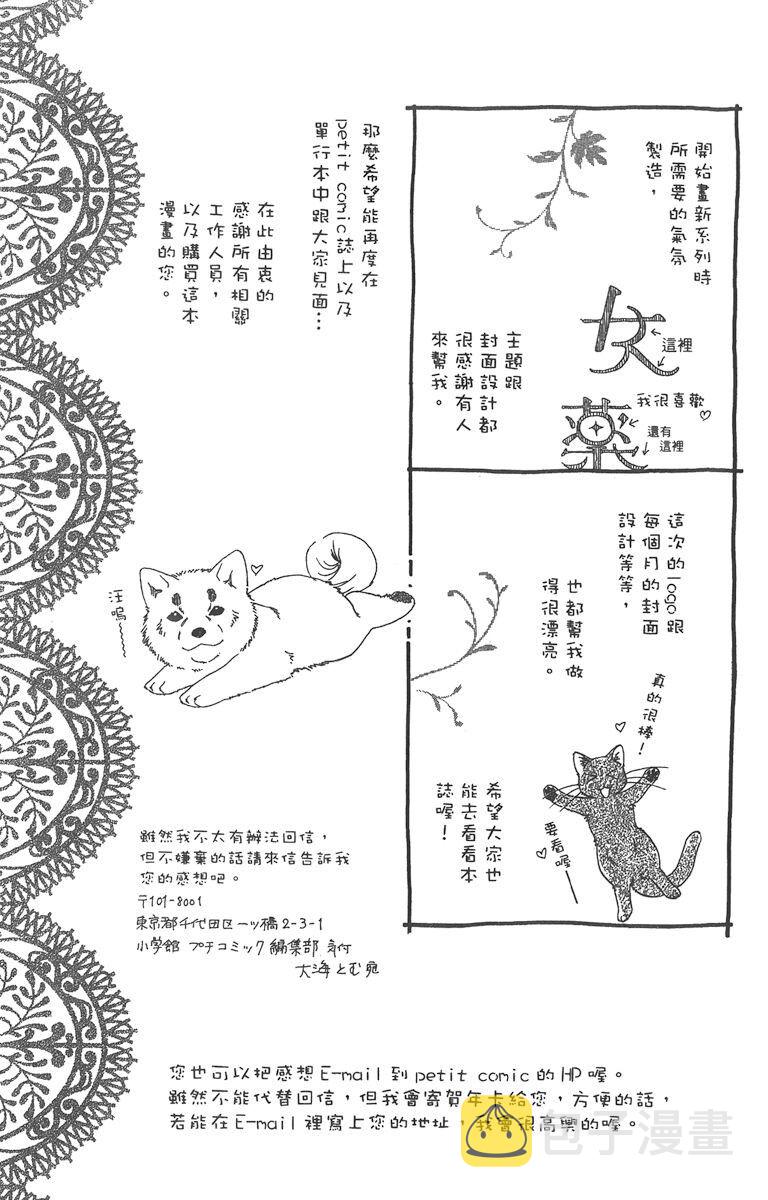 開始畫新系列時
所需要的氣氛
製造，
女
這裡
我很喜歡
藥
還有
這裡
主題跟
封面設計都
很感謝有人
來幫我。
這次的logo跟
每個月的封面
設計等等，
也都幫我做
得很漂亮。
真的很棒！
要看喔——
希望大家也
能去看看本
誌喔！
那麼希望能再度在
petit comic誌上以及
單行本中跟大家見面…
在此由衷的
感謝所有相關
工作人員，
以及購買這本
漫畫的您。
汪嗚～
雖然我不太有辦法回信，
但不嫌棄的話請來信告訴我
您的感想吧。
〒101-8001
東京都千代田区一ツ橋2-3-1
小学館 プチコミック編集部 気付
大海とむ宛
您也可以把感想E-mail到petit comic的HP喔。
雖然不能代替回信，但我會寄賀年卡給您，方便的話，
若能在E-mail裡寫上您的地址，我會很高興的喔。
包子漫畫